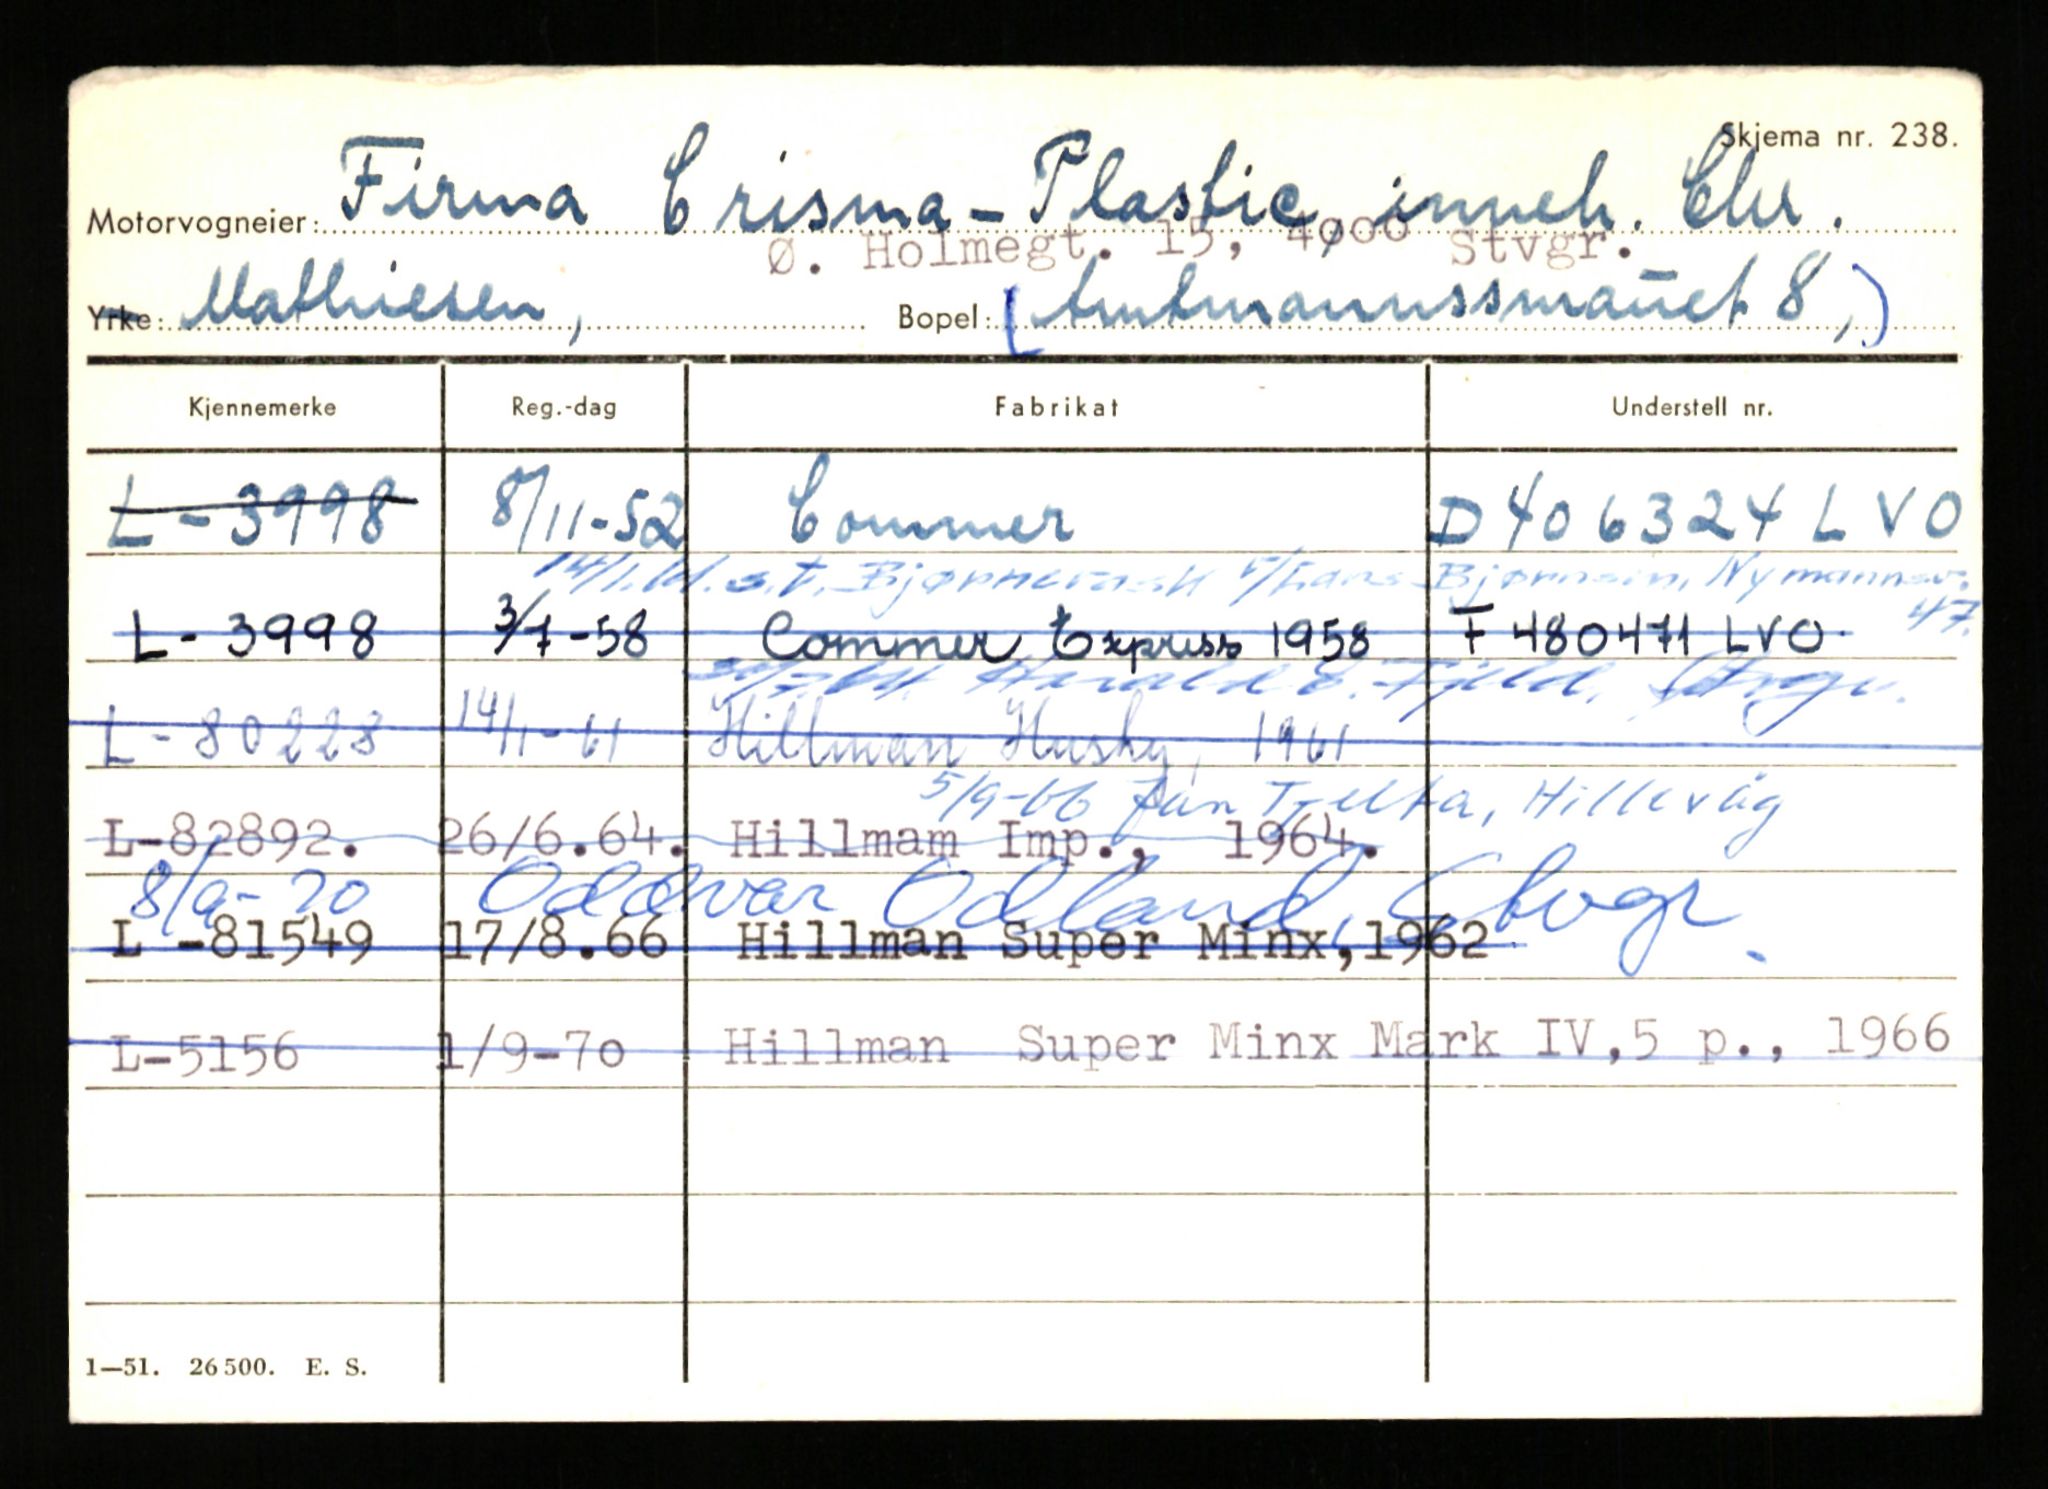 Skjema nr. 238.
Motorvogneier: Firma Crisma-Plastic, inneh. Chr.
Ø. Holmegt. 15, 4000 Stvgr.
Yrke: Mathiesen, Bopel: (Amtmannssmauet 8,)
Kjennemerke Reg.-dag Fabrikat Understell nr.
L-3998 8/11-52 Commer D406324 LVO
14/1.61. s.t. Bjørnevask v/Hans Bjørnsen, Nymannsv.
47.
L-3998 3/7-58 Commer Express 1958 F 480471 LVO.
Harald E. Fjeld, Stvgr.
L-80228 14/1-61 Hillman Husky, 1961
5/9-66 Jan Tjelta, Hillevåg
L-82892. 26/6.64. Hillmam Imp., 1964.
8/9-70 Oddvar Odland, Stvgr.
L -81549 17/8.66 Hillman Super Minx,1962
L-5156 1/9-70 Hillman Super Minx Mark IV,5 p., 1966
1—51. 26500. E. S.